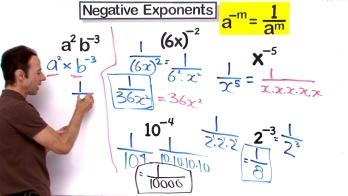 Negative Exponents
a⁻ᵐ = 1/aᵐ
a²b⁻³
a² × b⁻³
1
(6x)⁻²
1/(6x)² = 1/6²·x²
1/36x² = 36x²
x⁻⁵
1/x⁵ = 1/x.x.x.x.x
10⁻⁴
1/10⁴ 1/10·10·10·10
= 1/10000
2⁻³ = 1/2³
1/2·2·2
= 1/8